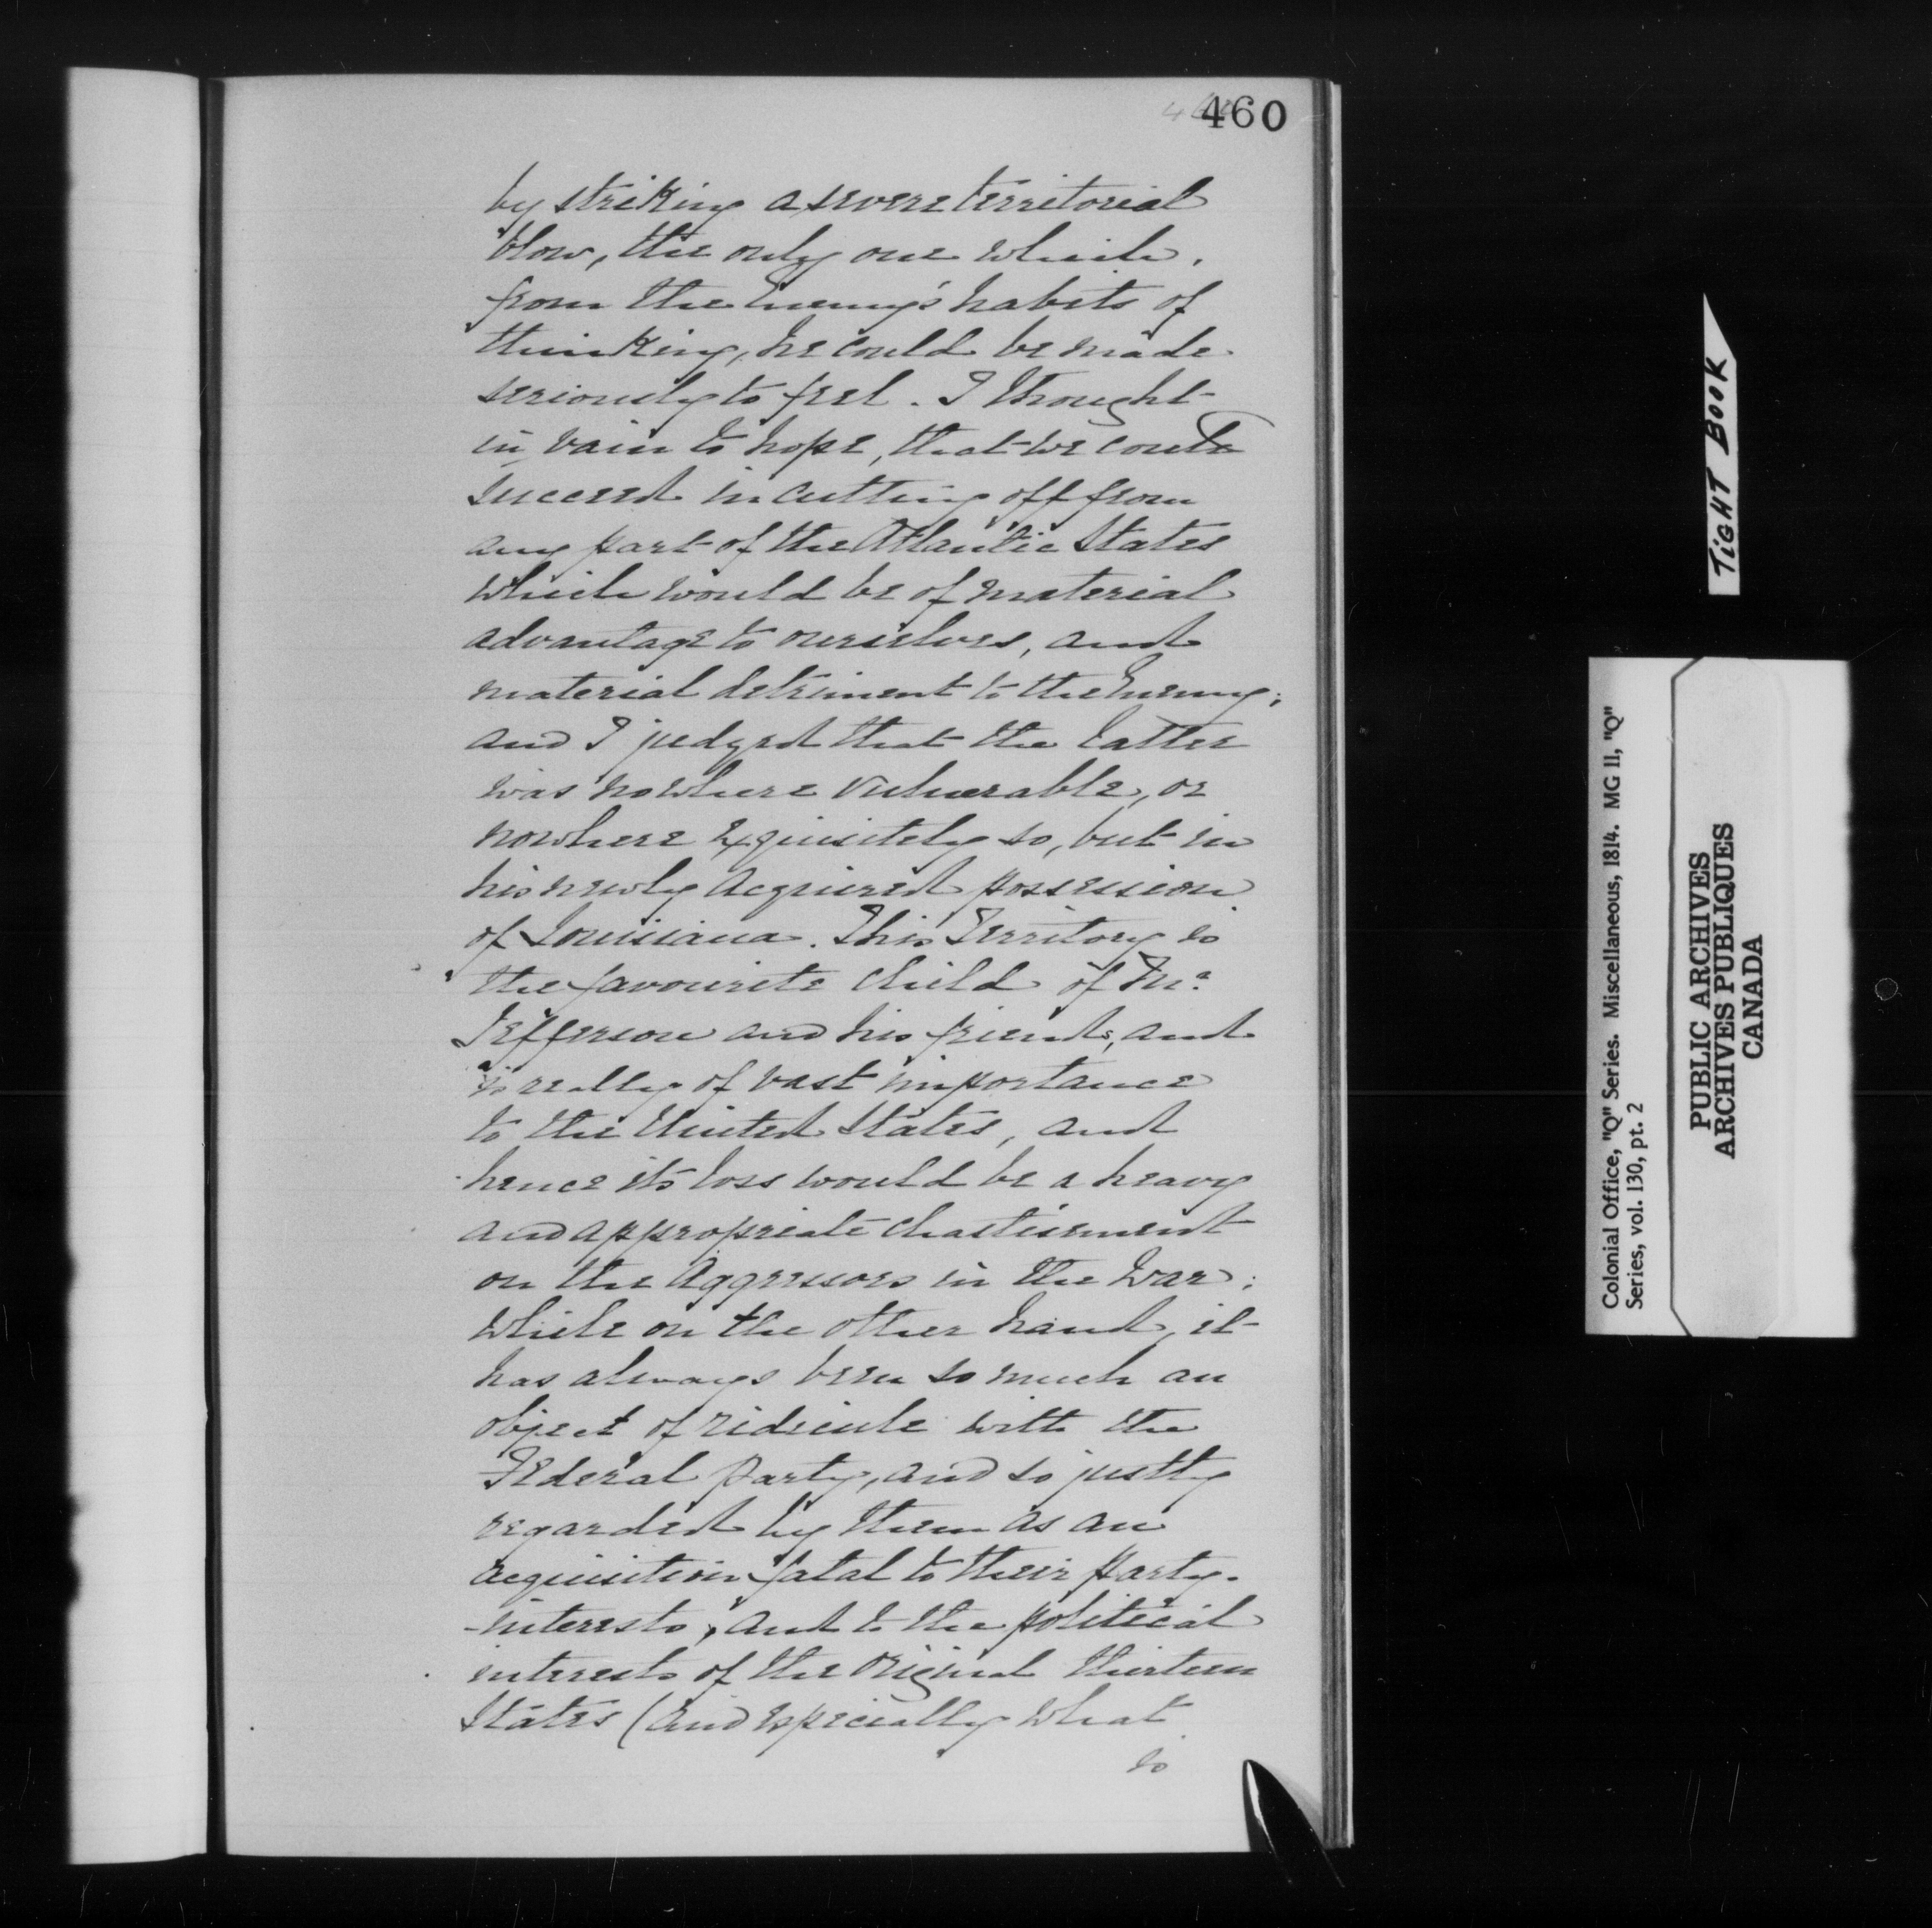 460
by striking a severe territorial
blow, the only one which,
from the Enemy's habits of
thinking, he could be made
seriously to feel. I thought
in vain to hope, that we could
succeed in cutting off from
any part of the Atlantic States
which would be of material
advantage to ourselves, and
material detriment to the Enemy;
and I judged that the latter
was nowhere vulnerable, or
nowhere exquisitely so, but in
his newly acquired possession
of Louisiana. This Territory is
the favourite child of Mr.
Jefferson and his friends, and
is really of vast importance
to the United States, and
hence its loss would be a heavy
and appropriate chastisement
on the Aggressors in the War;
while on the other hand, it
has always been so much an
object of ridicule with the
Federal party, and so justly
regarded by them as an
acquisition fatal to their party-
-interests, and to the political
interests of the original thirteen
States (and especially what
is
TIGHT BOOK
Colonial Office, "Q" Series. Miscellaneous, 1814. MG 11, "Q"
Series, vol. 130, pt. 2
PUBLIC ARCHIVES
ARCHIVES PUBLIQUES
CANADA